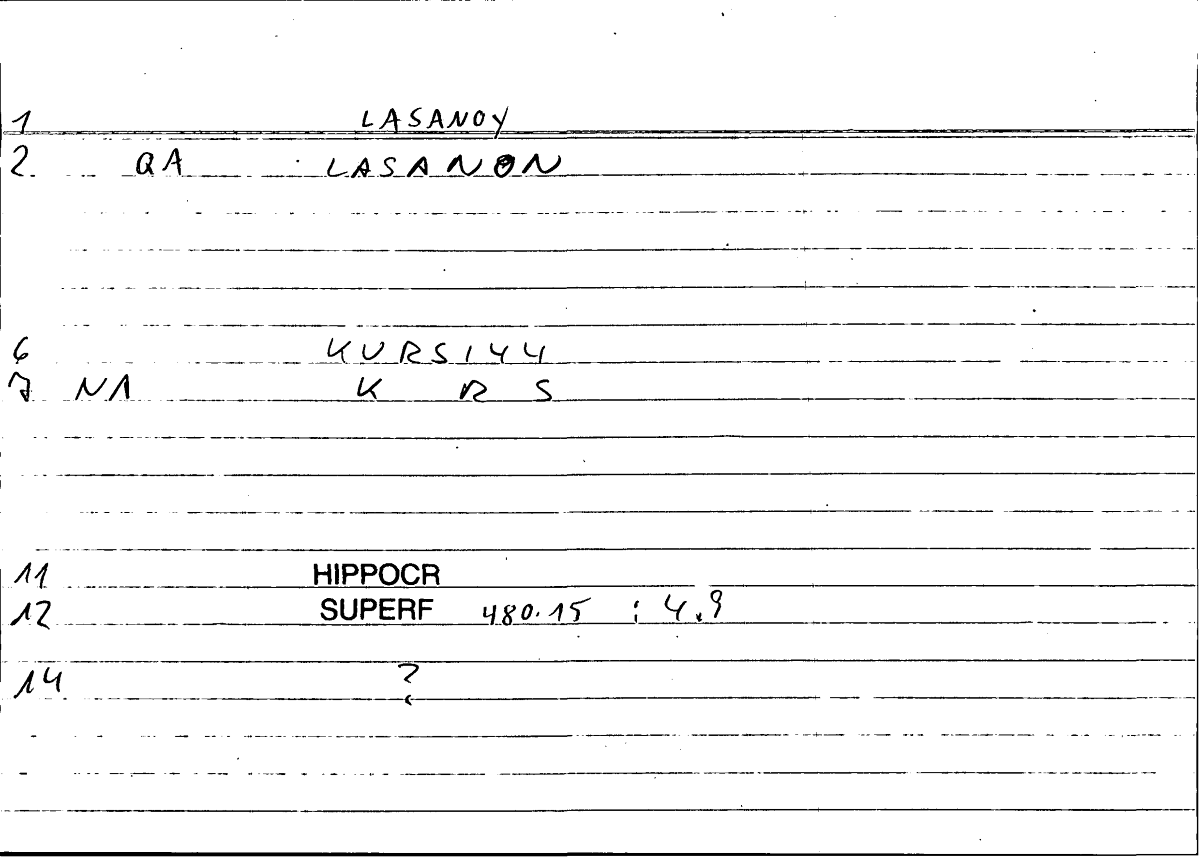 1 LASANOY
2. QA LASANON
6 KURSI44
7 NA K R S
11 HIPPOCR
12 SUPERF 480.15 : 4.9
14 ?